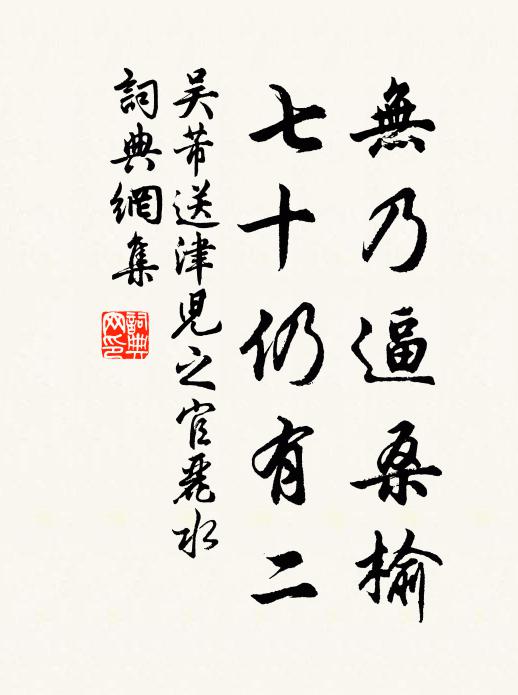 無乃逼桑榆
七十仍有二
吴芾送津兒之官麗水
詞典網集
詞典網印